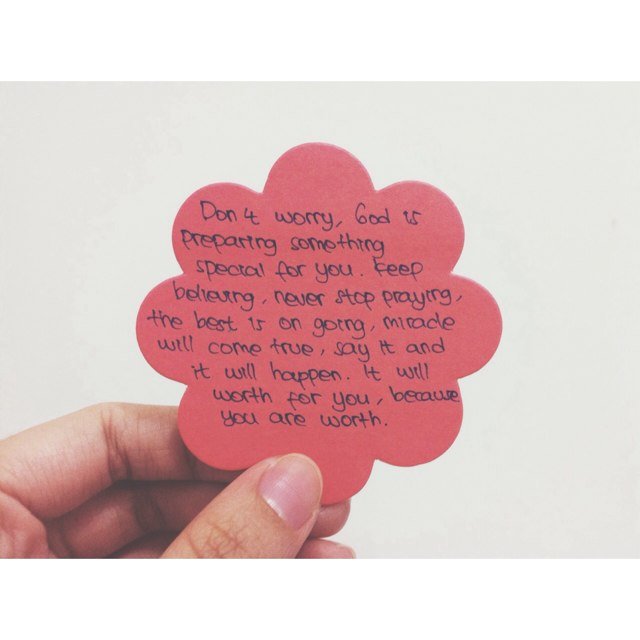 Don't worry, God is
preparing something
special for you. Keep
believing, never stop praying,
the best is on going, miracle
will come true, say it and
it will happen. It will
worth for you, because
you are worth.